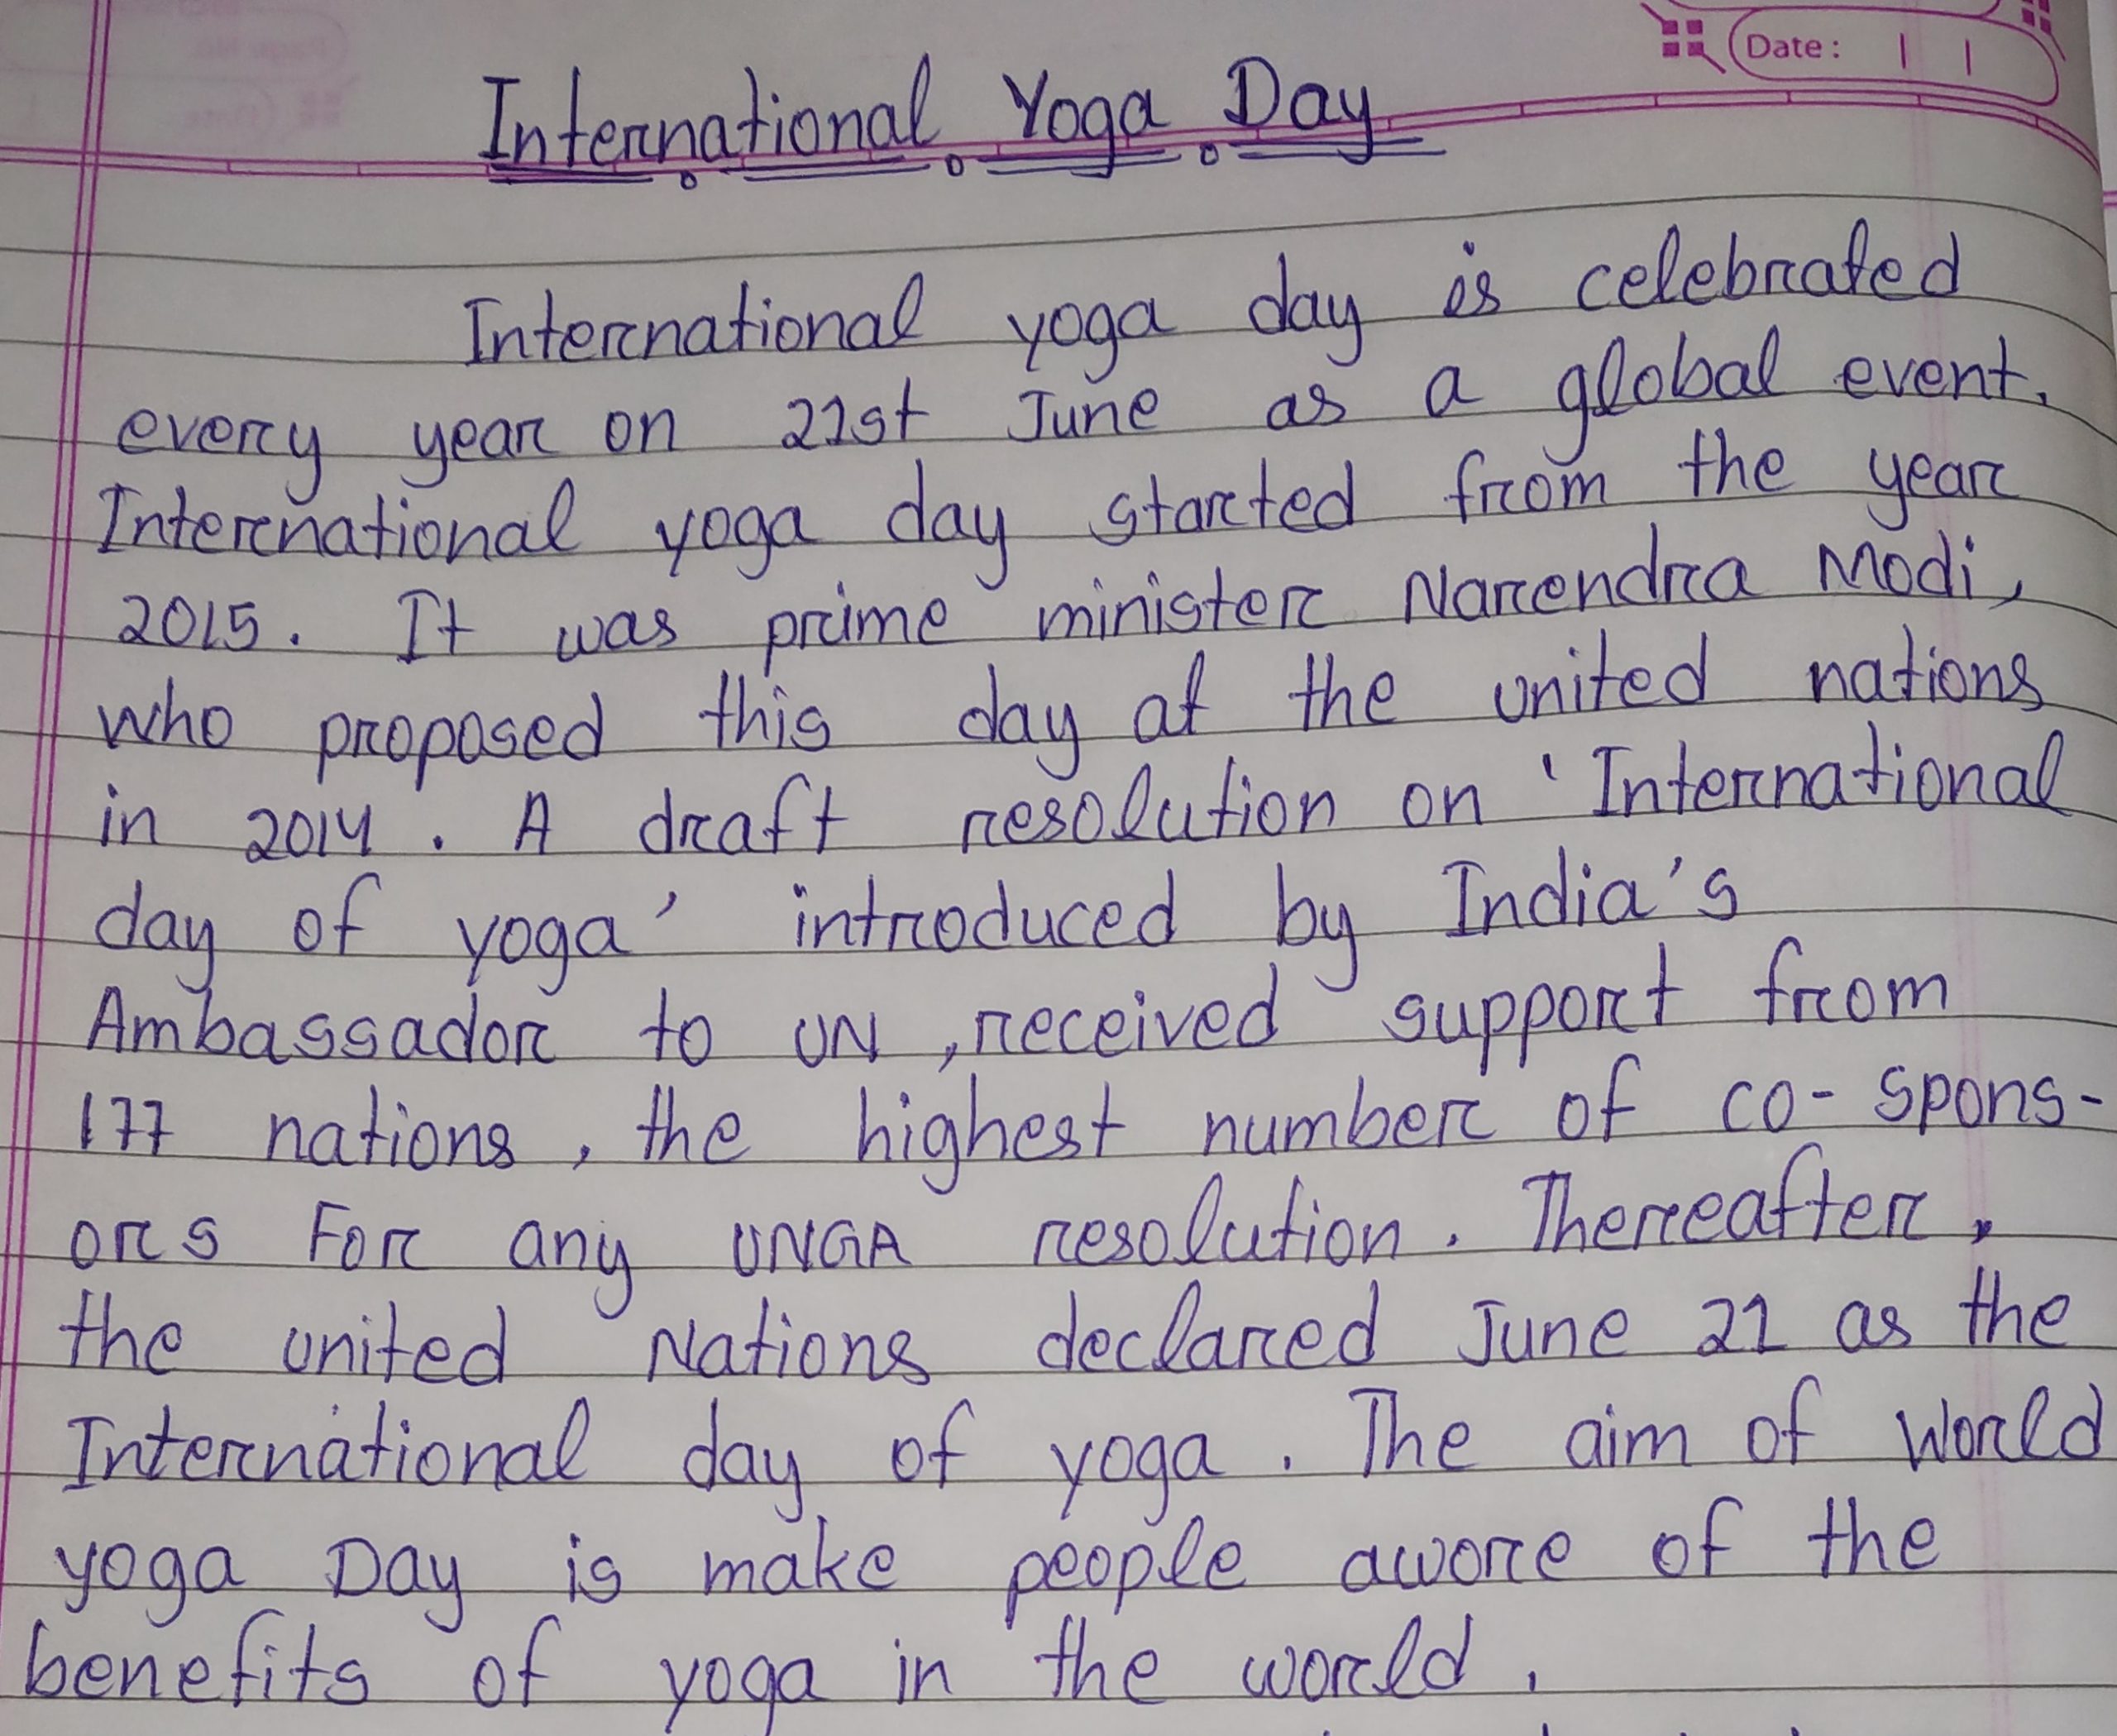 Date :
International Yoga Day
International yoga day is celebrated
every year on 21st June as a global event.
International yoga day started from the year
2015. It was prime minister Narendra Modi,
who proposed this day at the united nations
in 2014. A draft resolution on 'International
day of yoga' introduced by India's
Ambassador to UN, received support from
177 nations, the highest number of co-spons-
ors For any UNGA resolution. Thereafter,
the united Nations declared June 21 as the
International day of yoga. The aim of World
yoga Day is make people awore of the
benefits of yoga in the world.